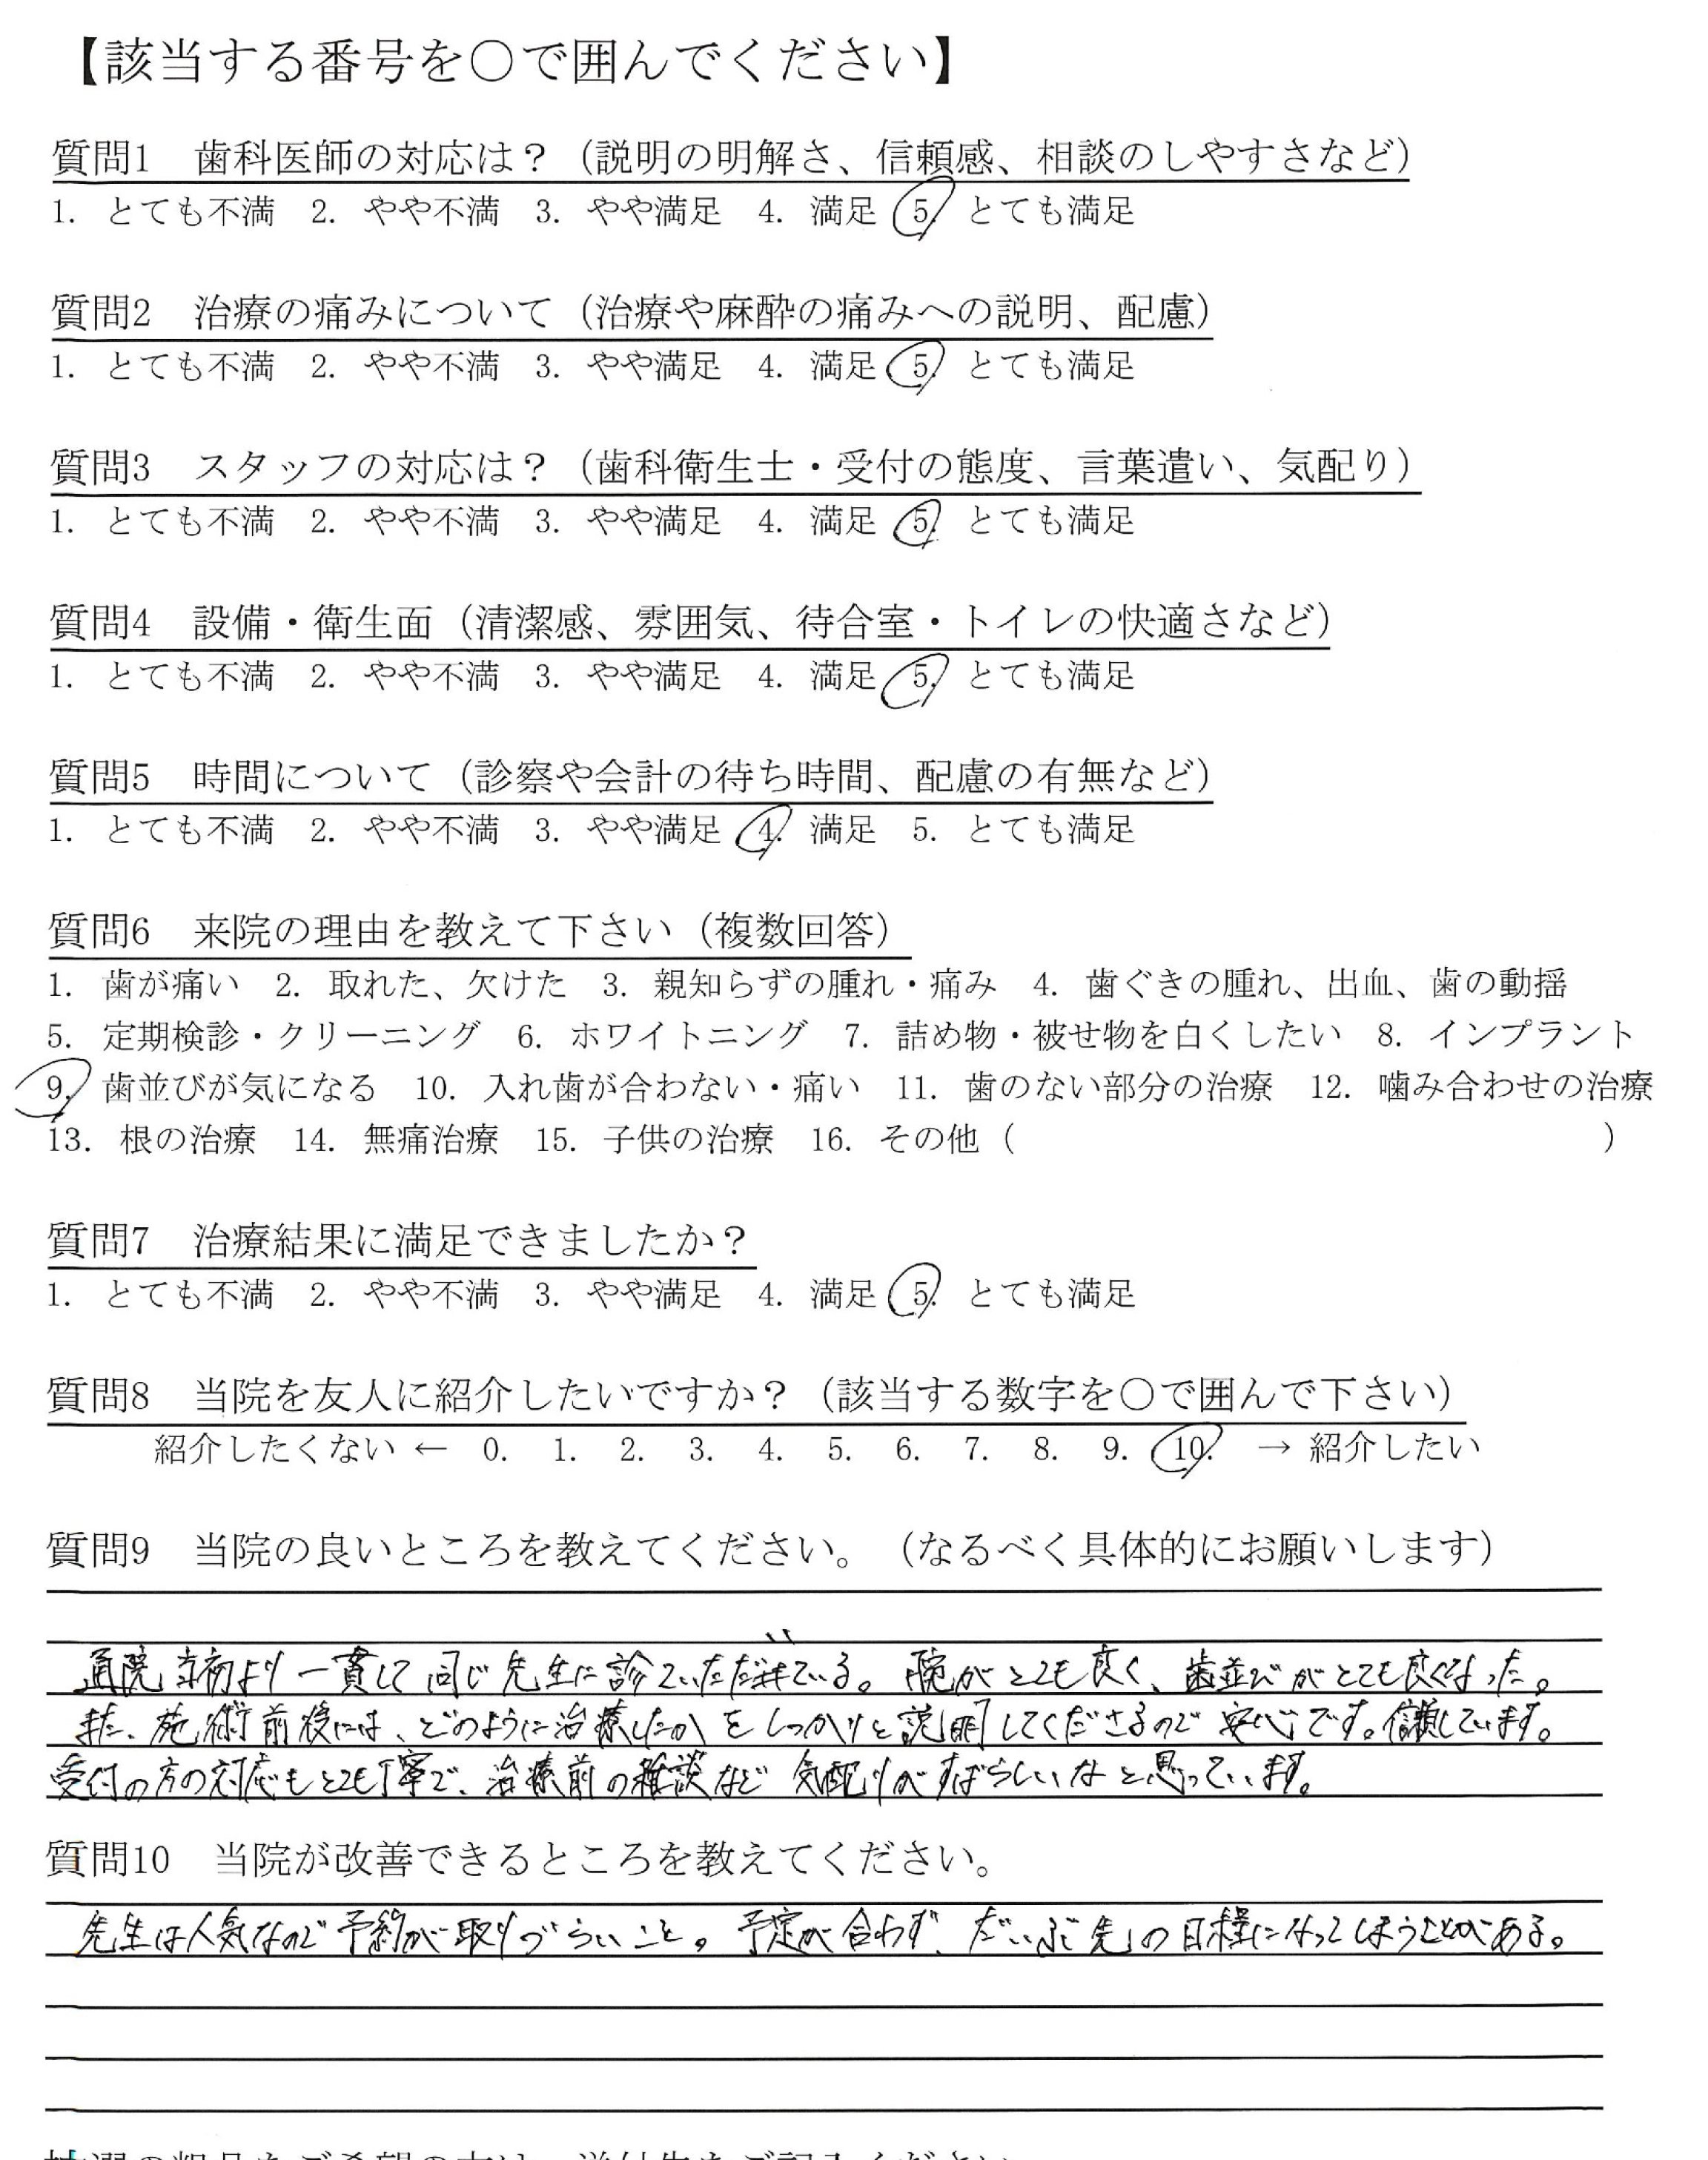 【該当する番号を○で囲んでください】
質問1　歯科医師の対応は？（説明の明解さ、信頼感、相談のしやすさなど）
1. とても不満　2. やや不満　3. やや満足　4. 満足　5. とても満足
質問2　治療の痛みについて（治療や麻酔の痛みへの説明、配慮）
1. とても不満　2. やや不満　3. やや満足　4. 満足　5. とても満足
質問3　スタッフの対応は？（歯科衛生士・受付の態度、言葉遣い、気配り）
1. とても不満　2. やや不満　3. やや満足　4. 満足　5. とても満足
質問4　設備・衛生面（清潔感、雰囲気、待合室・トイレの快適さなど）
1. とても不満　2. やや不満　3. やや満足　4. 満足　5. とても満足
質問5　時間について（診察や会計の待ち時間、配慮の有無など）
1. とても不満　2. やや不満　3. やや満足　4. 満足　5. とても満足
質問6　来院の理由を教えて下さい（複数回答）
1. 歯が痛い　2. 取れた、欠けた　3. 親知らずの腫れ・痛み　4. 歯ぐきの腫れ、出血、歯の動揺
5. 定期検診・クリーニング　6. ホワイトニング　7. 詰め物・被せ物を白くしたい　8. インプラント
9. 歯並びが気になる　10. 入れ歯が合わない・痛い　11. 歯のない部分の治療　12. 噛み合わせの治療
13. 根の治療　14. 無痛治療　15. 子供の治療　16. その他（　　　）
質問7　治療結果に満足できましたか？
1. とても不満　2. やや不満　3. やや満足　4. 満足　5. とても満足
質問8　当院を友人に紹介したいですか？（該当する数字を○で囲んで下さい）
紹介したくない ← 0. 1. 2. 3. 4. 5. 6. 7. 8. 9. 10. → 紹介したい
質問9　当院の良いところを教えてください。（なるべく具体的にお願いします）
通院当初より一貫して同じ先生に診ていただいている。腕がとても良く、歯並びがとても良くなった。
また、施術前後には、どのように治療したかをしっかりと説明してくださるので安心です。信頼しています。
受付の方の対応もとても丁寧で、治療前の雑談など気配りがすばらしいなと思っています。
質問10　当院が改善できるところを教えてください。
先生は人気なので予約が取りづらいこと。予定が合わず、だいぶ先の日程になってしまうことがある。